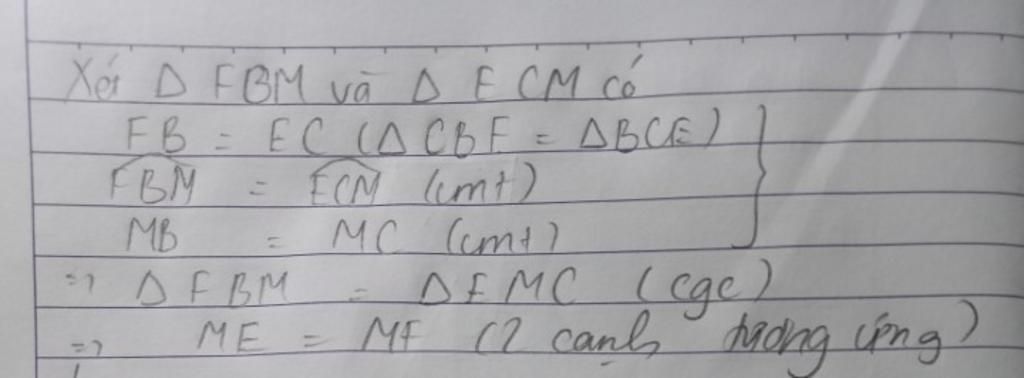 Xét Δ FBM và Δ ECM có
FB = EC (Δ CBF = ΔBCE)
FBM = ECM (cmt)
MB = MC (cmt)
=> Δ FBM = Δ EMC (cgc)
=> ME = MF (2 cạnh tương ứng)